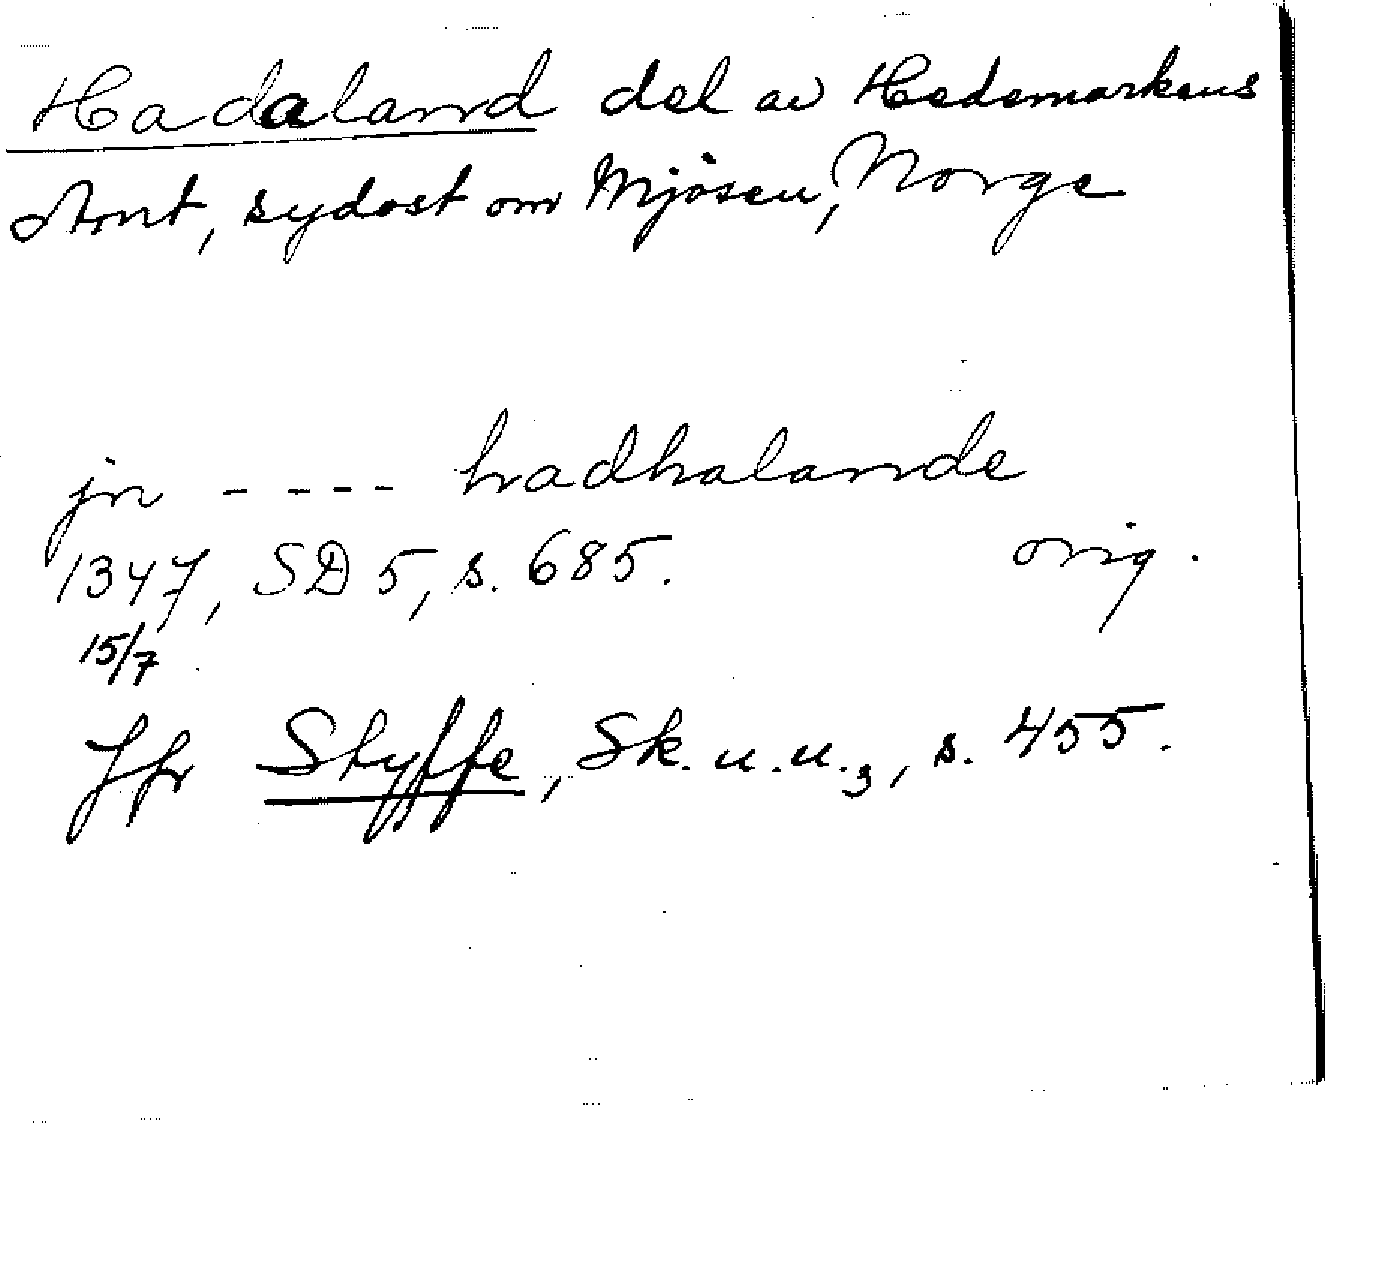 Hadaland del av Hedemarkens
Amt, sydost om Mjösen, Norge
jn ---- hadhalande
1347, SD 5, s. 685. orig.
15/7
Jfr Styffe, Sk. u. u. 3, s. 455.